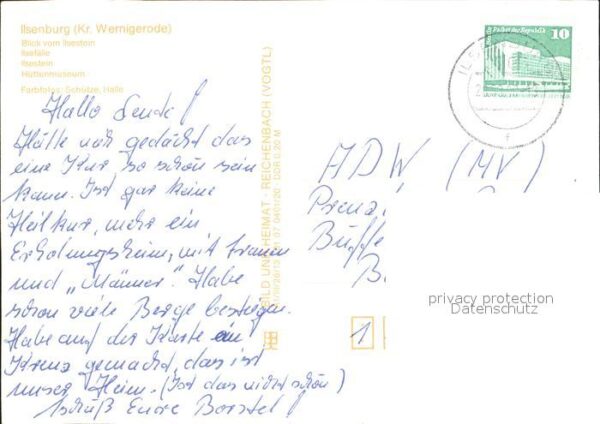 Ilsenburg (Kr. Wernigerode)
Blick vom Ilsestein
Ilsefälle
Ilsestein
Hüttenmuseum
Farbfotos: Schütze, Halle
Hallo Leute!
Hätte nie gedacht das
eine Kur so schön sein
kann. Ist gar keine
Heilkur, mehr ein
Erholungsheim, mit Frauen
und „Männer". Habe
schon viele Berge bestiegen.
Habe auf der Karte ein
Kreuz gemacht, das ist
unser Heim. (Ist das nicht schön)
Tschüß Eure Borstel!
BILD UND HEIMAT REICHENBACH (VOGTL)
DDR 0,20 M
Palast der Republik
10
ADW, (MV)
Prenz.
B.
privacy protection
Datenschutz
1